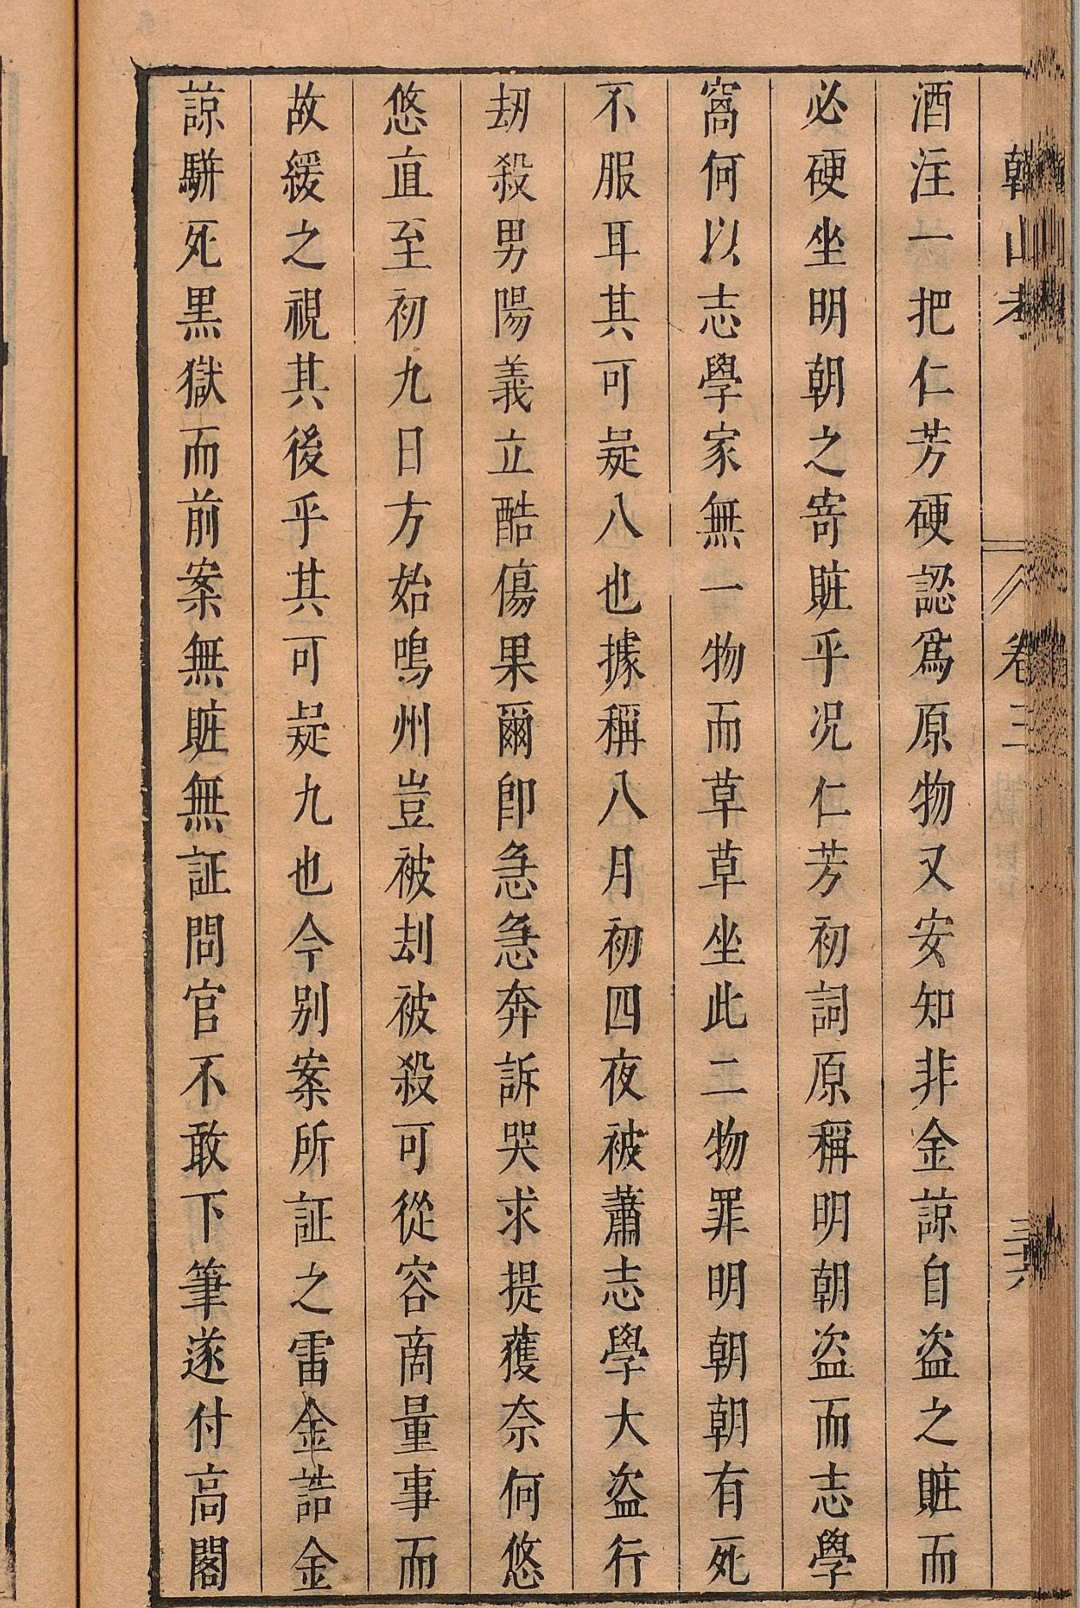 酒注一把仁芳硬認爲原物又安知非金諒自盜之賍而
必硬坐明朝之寄賍乎况仁芳初詞原稱明朝盜而志學
窩何以志學家無一物而草草坐此二物罪明朝朝有死
不服耳其可疑八也據稱八月初四夜被蕭志學大盜行
刧殺男陽義立酷傷果爾卽急急奔訴哭求提獲奈何悠
悠直至初九日方始鳴州豈被刦被殺可從容商量事而
故緩之視其後乎其可疑九也今别案所証之雷金誥金
諒駢死黑獄而前案無賍無証問官不敢下筆遂付高閣
卷三